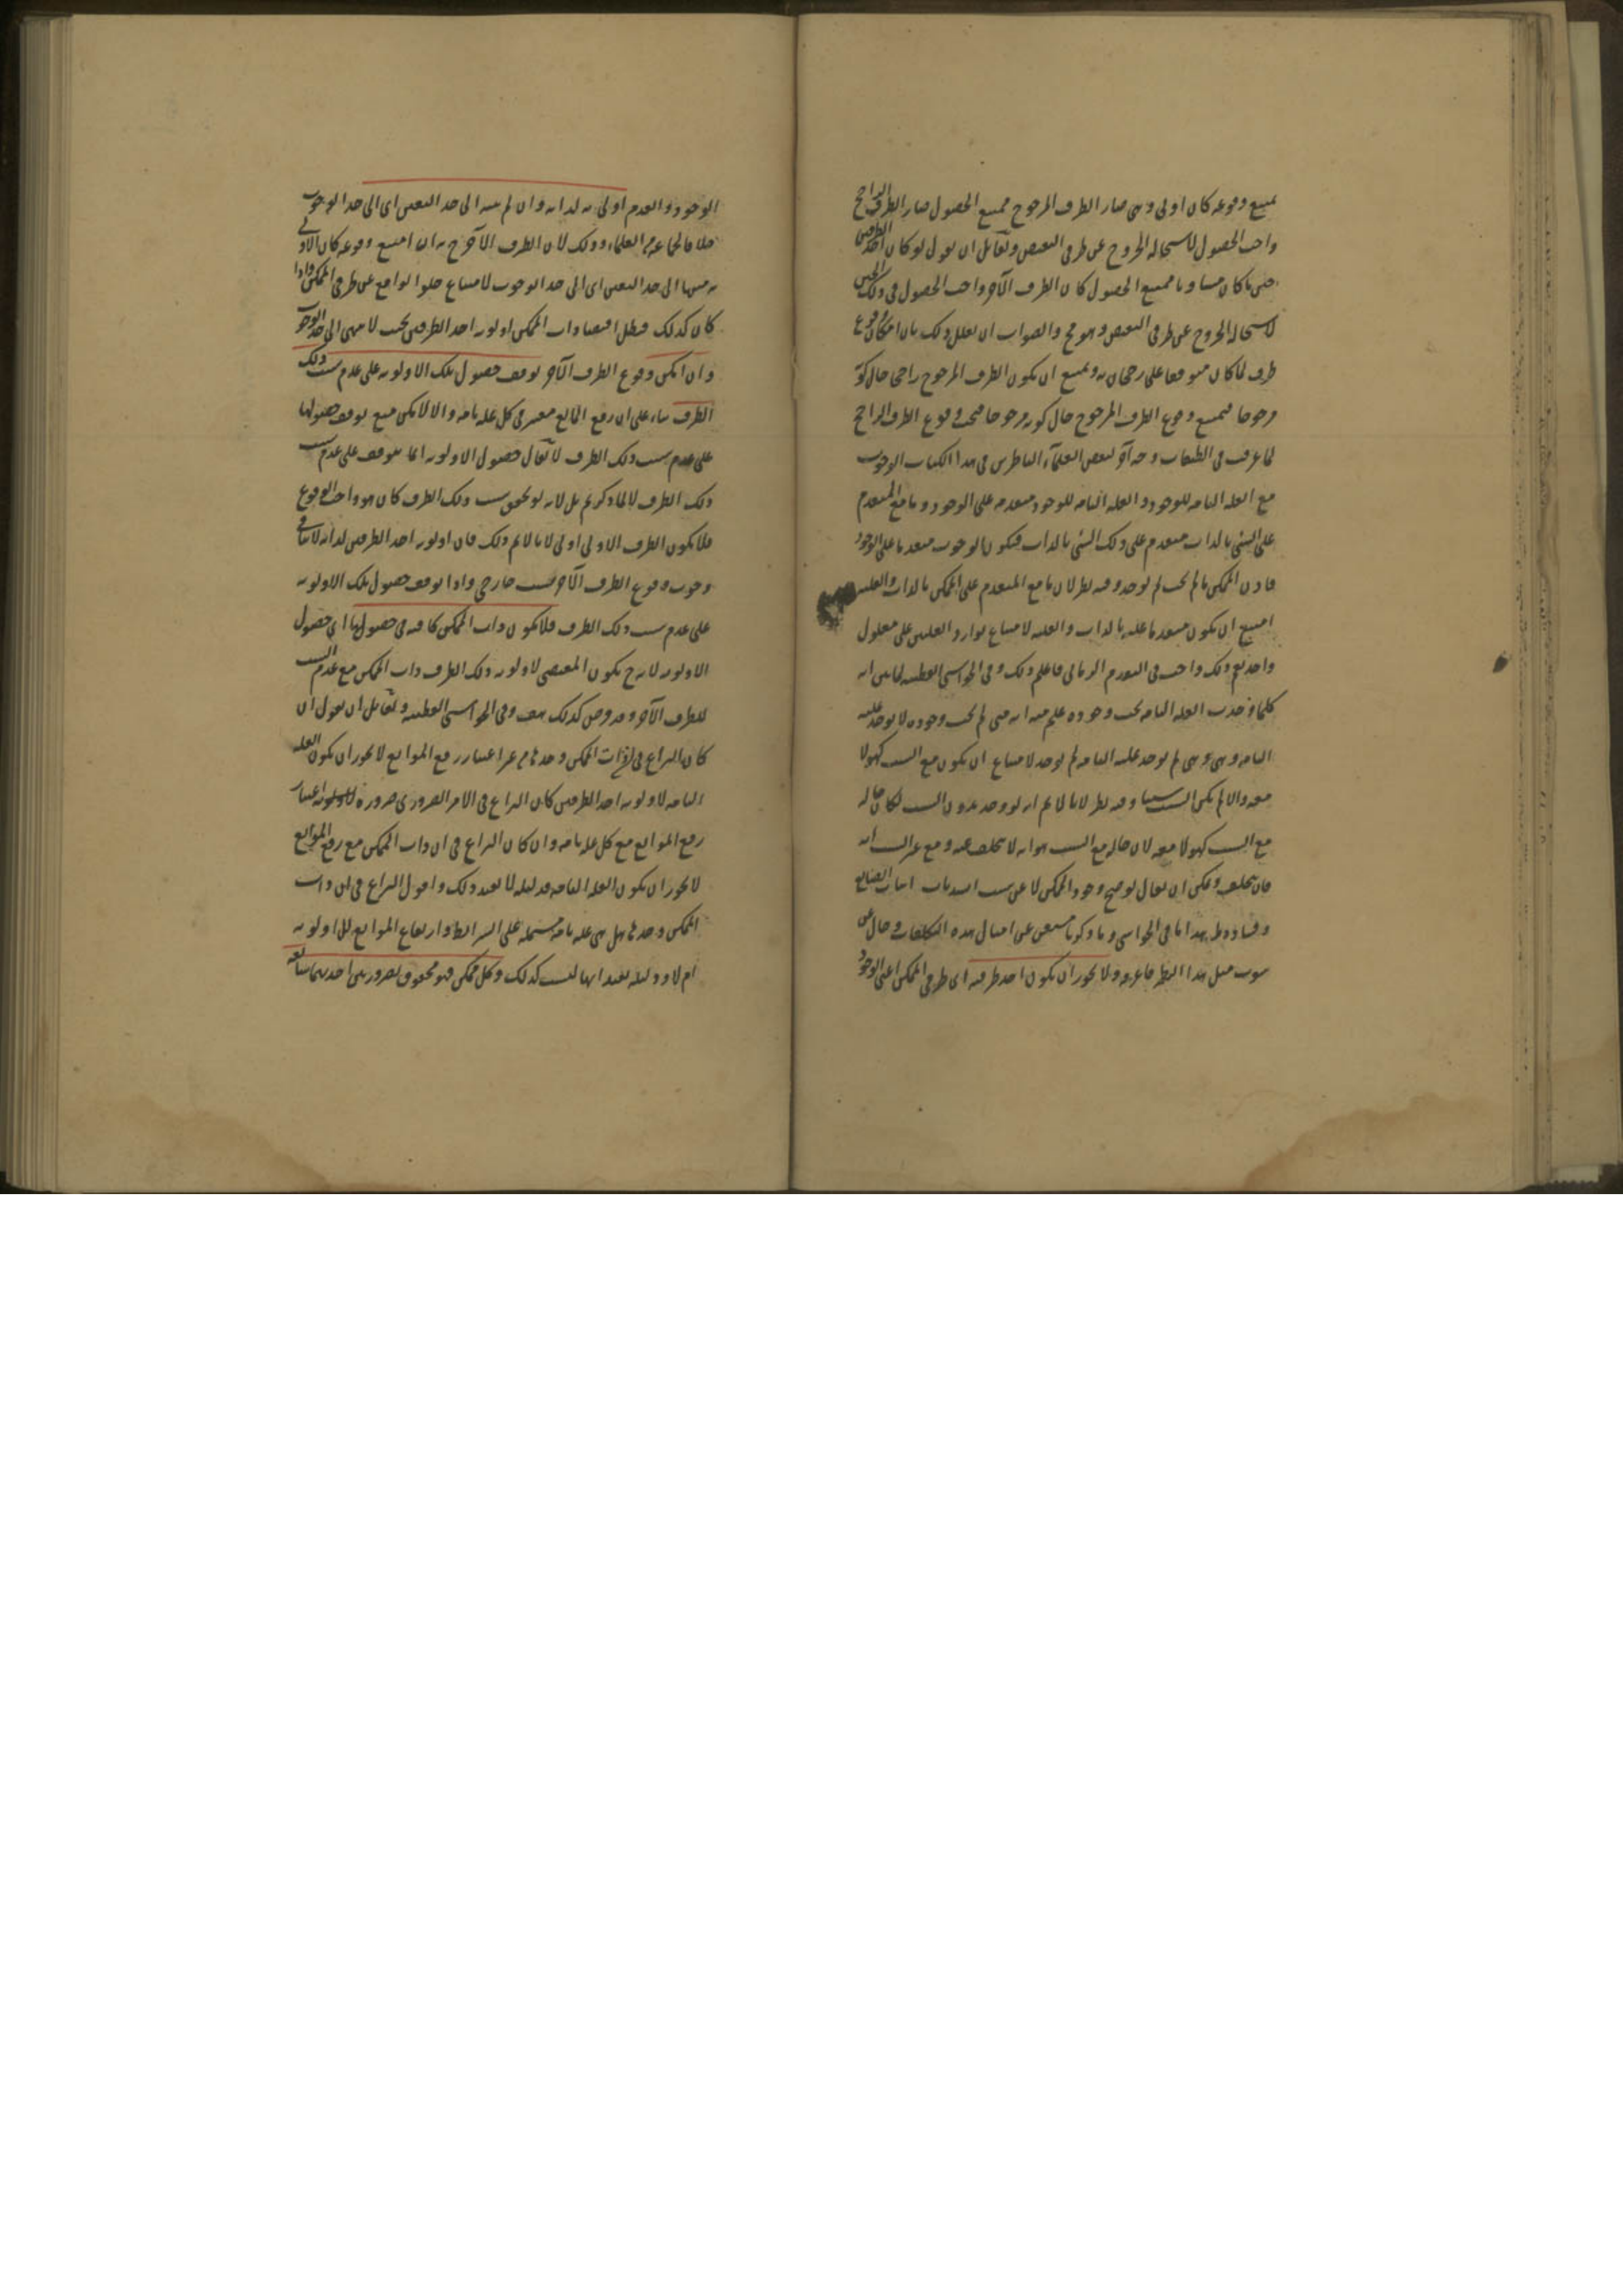 يمتنع وقوعه كان اولى وهى صار الطرف المرجوح ممتنع الحصول صار الطرف الراجح
واجب الحصول لاستحالة الخروج عن طرفى النقيض ولقائل ان يقول لو كان احد الطرفين
حين ما كان مساويا ممتنع الحصول كان الطرف الآخر واجب الحصول فى ذلك الحين
لاستحالة الخروج عن طرفى النقيض وهو مح والصواب ان يعلل ذلك بان امكان وقوع
طرف لما كان متوقفا على رجحانه ويمتنع ان يكون الطرف المرجوح راجحا حال كونه
مرجوحا فيمتنع وقوع الطرف المرجوح حال كونه مرجوحا فيجب وقوع الطرف الراجح
لما عرفت فى الطبقات وجه آخر لبعض العلماء الناظرين فى هذا الكتاب الوجوب
مع العلة التامة للوجود والعلة التامة للوجود متقدمة على الوجود وما مع المتقدم
على الشئ بالذات متقدم على ذلك الشئ بالذات فيكون الوجوب متقدما على الوجود
فاذن الممكن ما لم يجب لم يوجد وفيه نظر لان ما مع المتقدم على الممكن بالذات والعلية
امتنع ان يكون متقدما عليه بالذات والعلية لامتناع توارد العلتين على معلول
واحد نعم ذلك واجب فى التقدم الزمانى فاعلم ذلك وفى الحواشى القطبية لما بين انه
كلما وجدت العلة التامة يجب وجوده علم منه انه متى لم يجب وجوده لا يوجد علته
التامة ومتى لم يوجد علته التامة لم يوجد لامتناع ان يكون مع السبب كهو لا
معه والا لم يكن السبب سببا وفيه نظر لانا لا نم انه لو وجد بدون السبب لكان حاله
مع السبب كهو لا معه لان حاله مع السبب هو انه لا يتخلف عنه ومع غير السبب انه
قد يتخلف ويمكن ان يقال لو صح وجود الممكن لا عن سبب انسد باب اثبات الصانع
وفساده ظ هذا ما فى الحواشى وما ذكرنا مستغن عن امثال هذه التكلفات وخال عن
ثبوت مثل هذا النظر فاعرفه ولا يجوز ان يكون احد طرفيه اى طرفى الممكن اعنى الوجود
الوجود والعدم اولى به لذاته وان لم ينته الى حد التعين اى الى حد الوجوب
خلافا لجماعة من العلماء وذلك لان الطرف الآخر ح به ان امتنع وقوعه كان الاولى
به منتهيا الى حد التعين اى الى حد الوجوب لامتناع خلو الواقع عن طرفى الممكن واذا
كان كذلك فبطل اقتضاء ذات الممكن اولوية احد الطرفين بحيث لا ينتهى الى حد الوجوب
وان امكن وقوع الطرف الآخر توقف حصول تلك الاولوية على عدم سبب ذلك
الطرف بناء على ان رفع المانع معتبر فى كل علة تامة والا لامكن منع توقف حصولها
على عدم سبب ذلك الطرف لا يقال حصول الاولوية انما يتوقف على عدم سبب
ذلك الطرف لا لما ذكرتم بل لانه لو تحقق سبب ذلك الطرف كان هو واجب الوقوع
فلا يكون الطرف الاولى اولى لانا لا نم ذلك فان اولوية احد الطرفين لذاته لا ينافى
وجوب وقوع الطرف الآخر بسبب خارجى واذا توقف حصول تلك الاولوية
على عدم سبب ذلك الطرف فلا يكون ذات الممكن كافية فى حصولها اى حصول
الاولوية لانه ح يكون المقتضى لاولوية ذلك الطرف ذات الممكن مع عدم السبب
للطرف الآخر وقد فرض كذلك هف وفى الحواشى القطبية ولقائل ان يقول ان
كان النزاع فى ان ذات الممكن وحدها من غير اعتبار رفع الموانع لا يجوز ان يكون العلة
التامة لاولوية احد الطرفين كان النزاع فى الامر الضرورى ضرورة اعتبار
رفع الموانع مع كل علة تامة وان كان النزاع فى ان ذات الممكن مع رفع الموانع
لا يجوز ان يكون العلة التامة فدليله لا يفيد ذلك واقول النزاع فى ان ذات
الممكن وحدها هل هى علة تامة مشتملة على الشرائط وارتفاع الموانع لتلك الاولوية
ام لا ودليله يفيد انها ليست كذلك وكل ممكن فهو محفوف بضرورتين احديهما سابقة